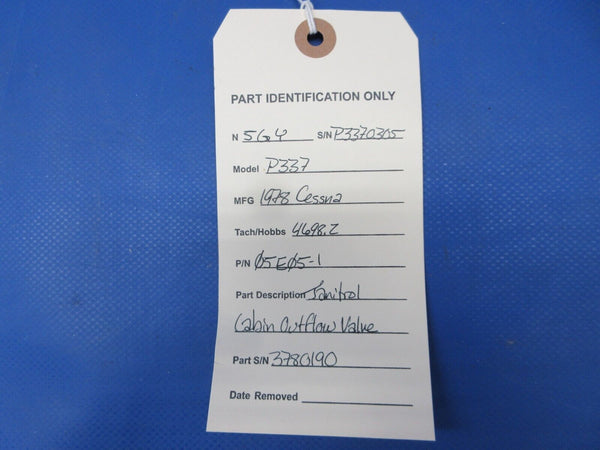 PART IDENTIFICATION ONLY
N 5GY S/N P3370305
Model P337
MFG 1978 Cessna
Tach/Hobbs 4698.2
P/N Ø5EØ5-1
Part Description Janitrol
Cabin Outflow Valve
Part S/N 3780190
Date Removed